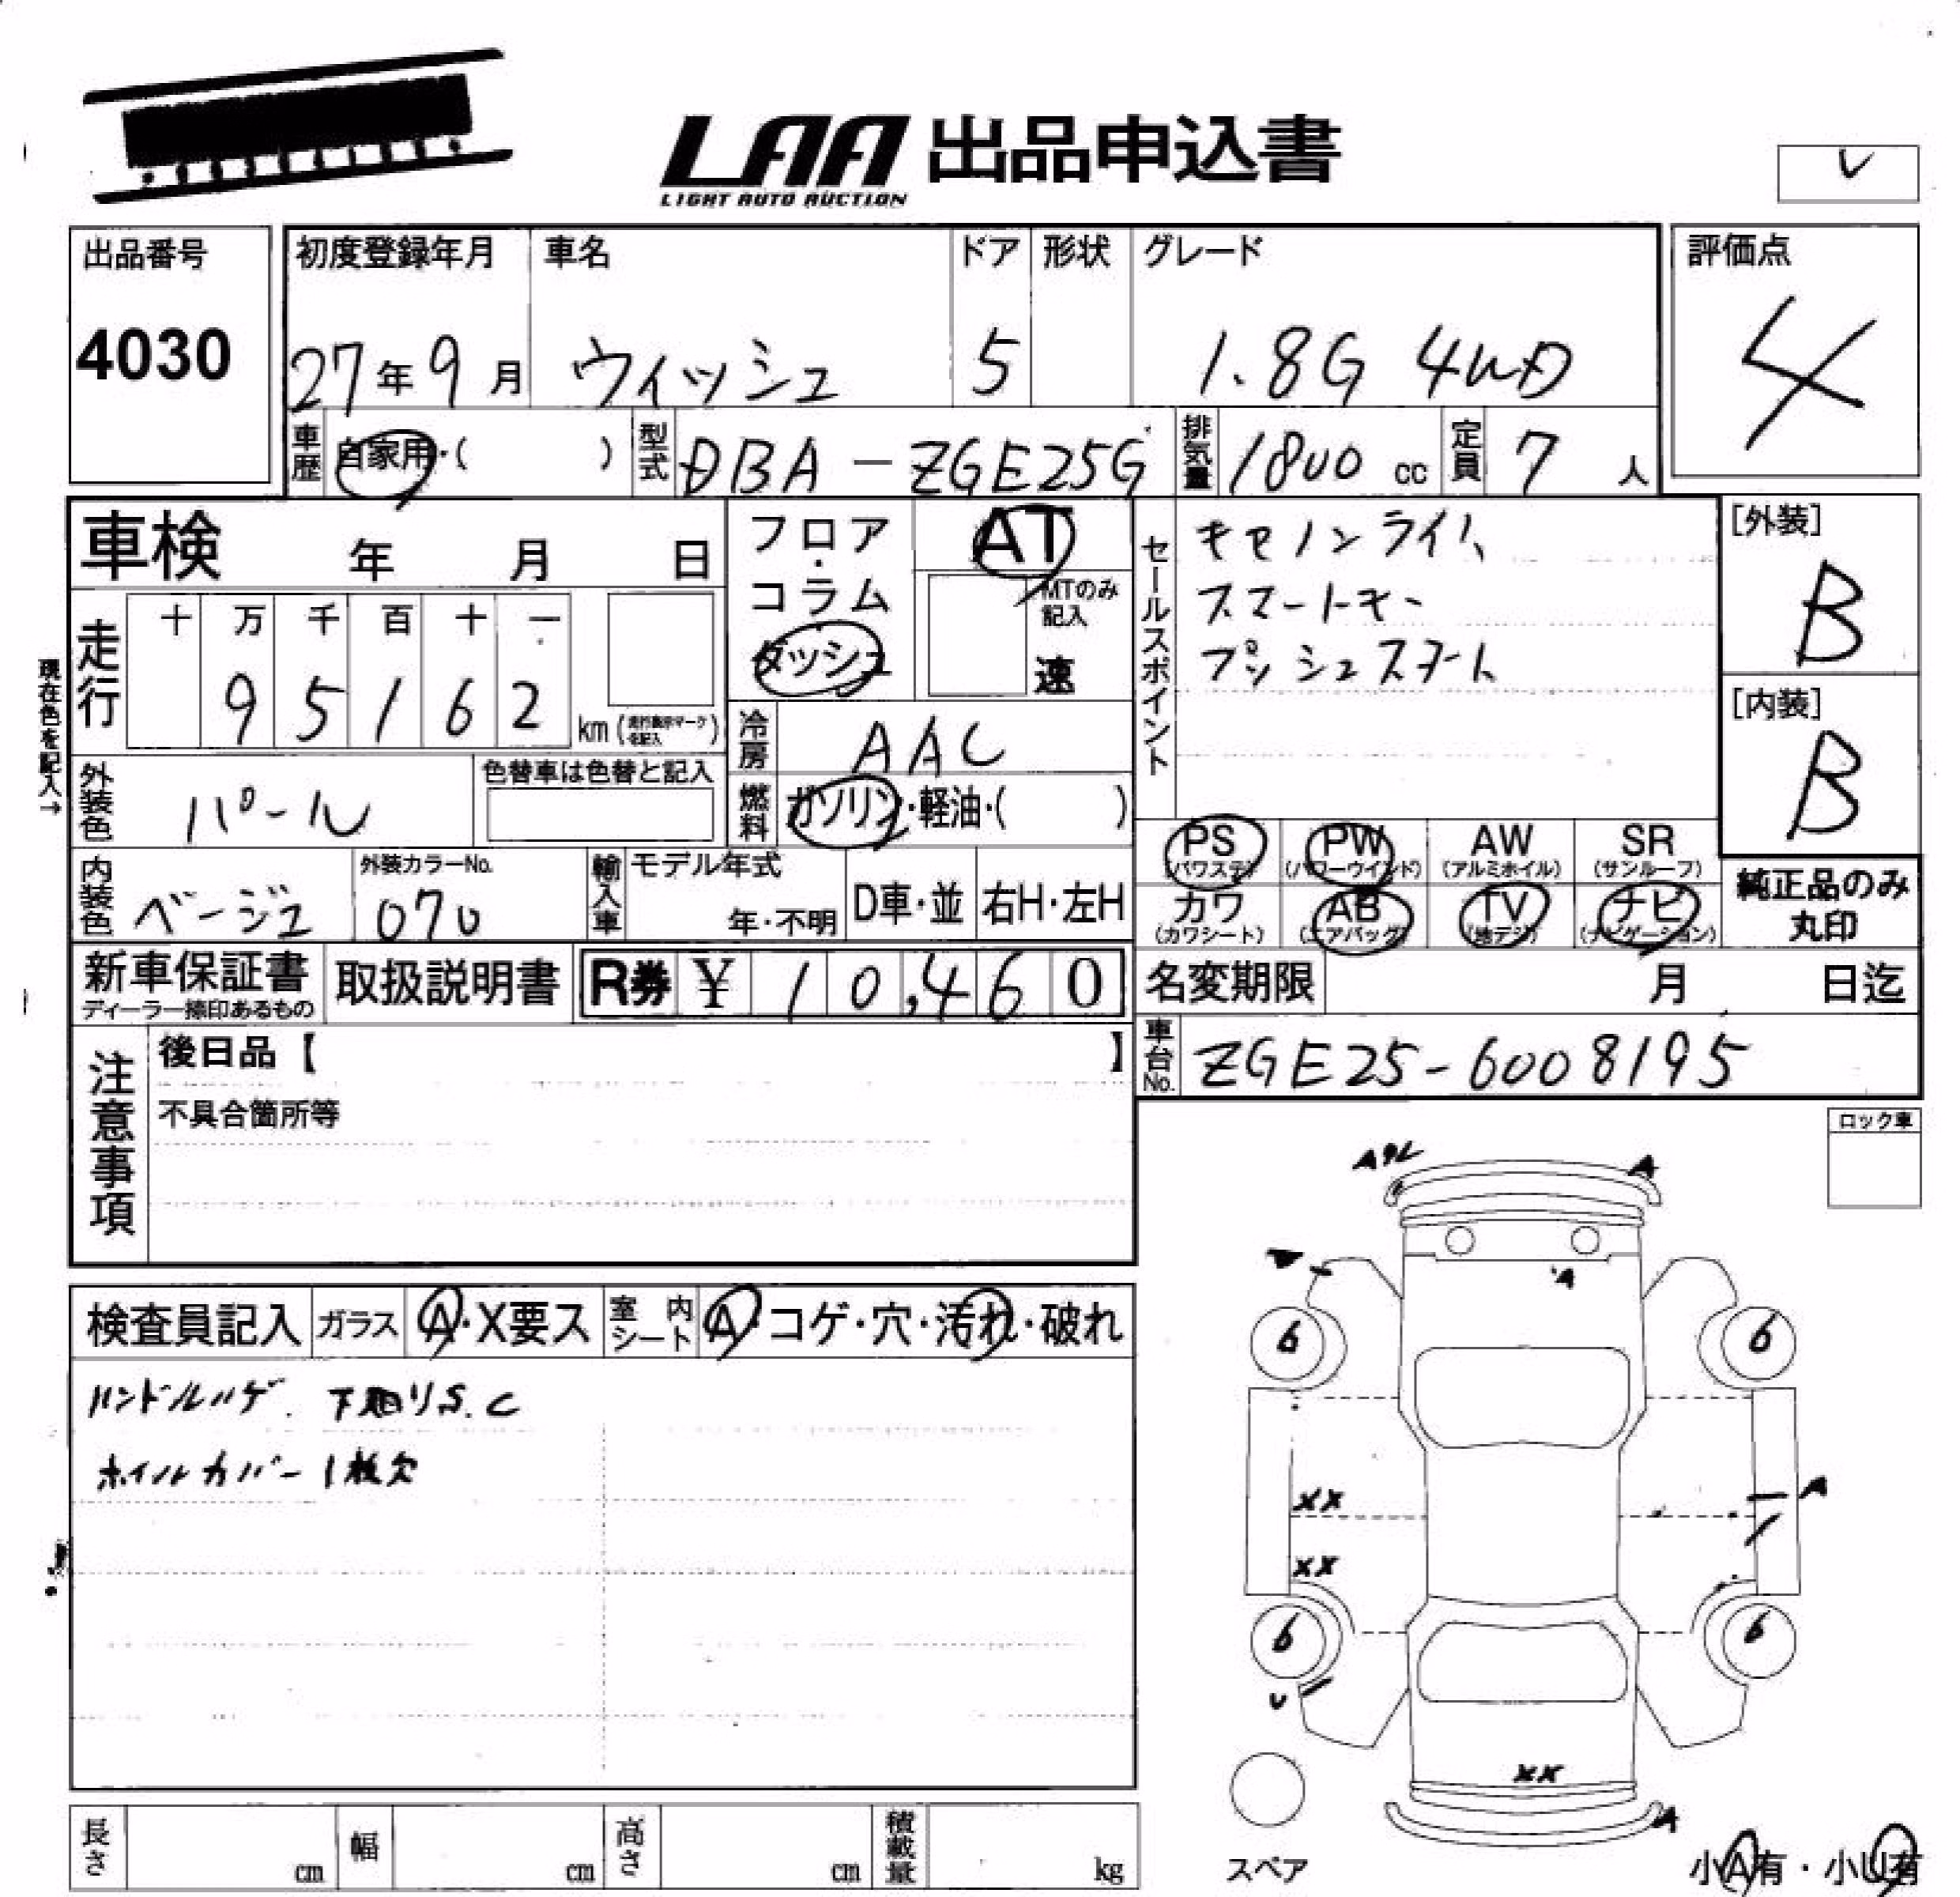 LAA 出品申込書
LIGHT AUTO AUCTION
出品番号
4030
初度登録年月
27年9月
車名
ウィッシュ
ドア
5
形状
グレード
1.8G 4WD
評価点
4
車歴 自家用・( )
型式 DBA-ZGE25G
排気量 1800 cc
定員 7 人
車検 年 月 日
フロア・コラム
ダッシュ
AT
MTのみ記入
速
セールスポイント
キセノンライト
スマートキー
プッシュスタート
[外装]
B
[内装]
B
現在色を記入→
走行
十 万 千 百 十 一
9 5 1 6 2
km (走行表示マークを記入)
冷房 AAC
外装色 パール
色替車は色替と記入
燃料 ガソリン・軽油・( )
PS (パワステ)
PW (パワーウインド)
AW (アルミホイル)
SR (サンルーフ)
カワ (カワシート)
AB (エアバッグ)
TV (地デジ)
ナビ (ナビゲーション)
純正品のみ
丸印
内装色 ベージュ
外装カラーNo.
070
輸入車 モデル年式
年・不明
D車・並
右H・左H
新車保証書
ディーラー捺印あるもの
取扱説明書
R券 ¥ 10,460
名変期限 月 日迄
車台No. ZGE25-6008195
注意事項
後日品【 】
不具合箇所等
ロック車
A
A
検査員記入 ガラス A・X要ス 室内シート A・コゲ・穴・汚れ・破れ
ハンドルハゲ. 下廻りS.C
ホイルカバー1枚欠
A
6 6
XX
A
XX
6 6
U
XX
A
スペア
小A有・小U有
長さ cm
幅 cm
高さ cm
積載量 kg